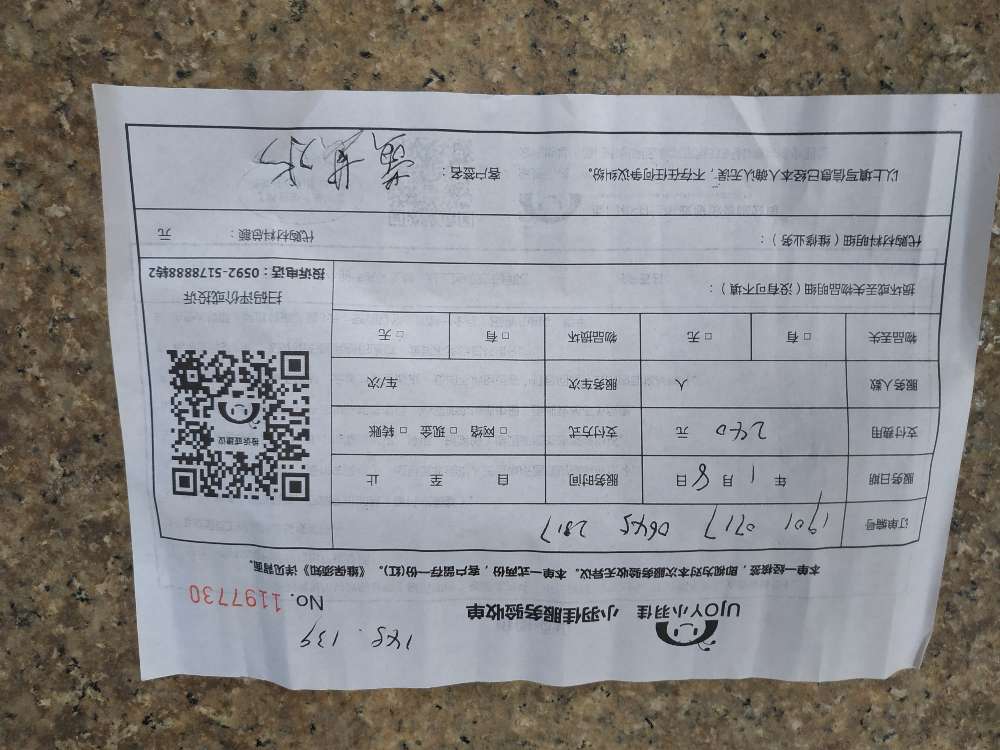 148. 139
UJOY小羽佳 小羽佳服务验收单 No. 1197730
本单一经核签，即视为对本次服务验收无异议。本单一式两份，客户留存一份(红)。《维保须知》详见背面。
订单编号 1701 0717 0645 2817
服务日期 年 1 月 8 日 服务时间 日 至 止
支付费用 240 元 支付方式 □ 网络 □ 现金 □ 转账
服务人数 人 服务车次 车/次
物品丢失 □ 有 □ 无 物品损坏 □ 有 □ 无
投诉或建议
扫码评价或投诉
投诉电话：0592-5178888转2
损坏或丢失物品明细（没有可不填）：
代购材料明细（维修业务）： 代购材料总额： 元
以上填写信息已经本人确认无误，不存在任何争议纠纷。 客户签名：